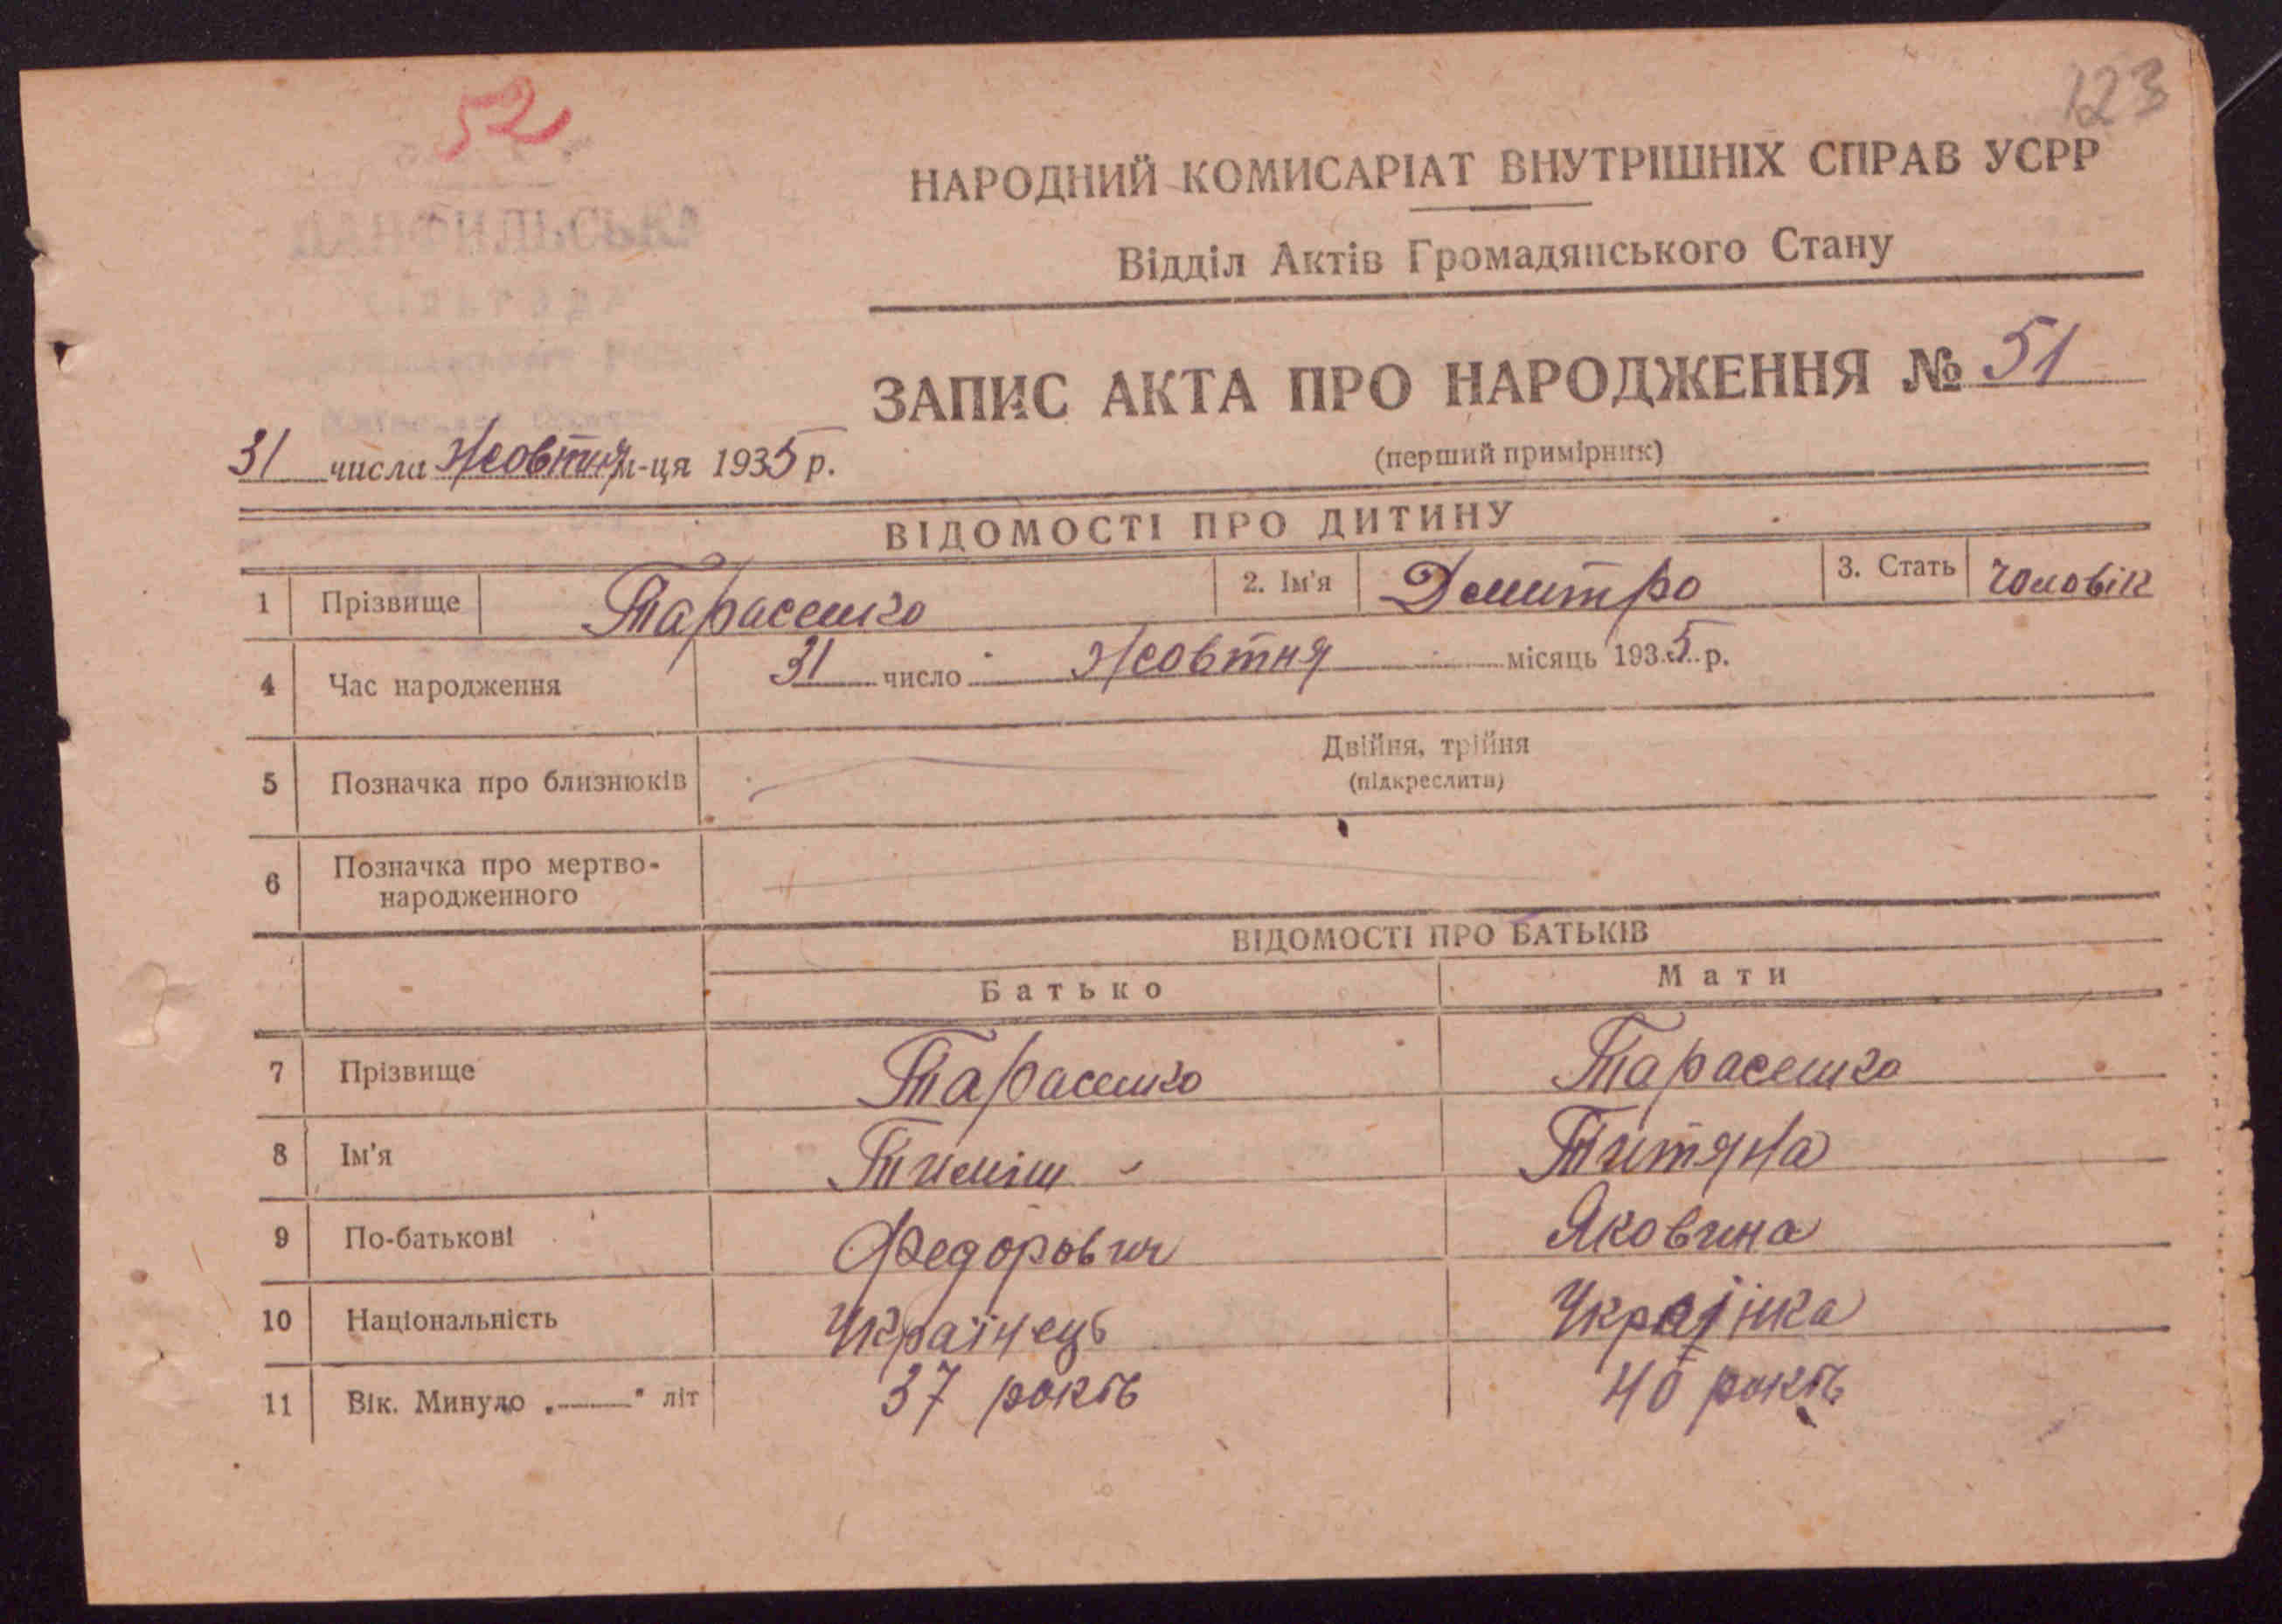 52
123
ПАНФИЛЬСЬКА
СІЛЬРАДА
НАРОДНИЙ КОМИСАРІАТ ВНУТРІШНІХ СПРАВ УСРР
Відділ Актів Громадянського Стану
ЗАПИС АКТА ПРО НАРОДЖЕННЯ № 51
(перший примірник)
31 числа Жовтня м-ця 1935 р.
ВІДОМОСТІ ПРО ДИТИНУ
1 Прізвище Тарасенко 2. Ім'я Дмитро 3. Стать чоловік
4 Час народження 31 число Жовтня місяць 1935 р.
Двійня, трійня
5 Позначка про близнюків (підкреслити)
6 Позначка про мертво-
народженного
ВІДОМОСТІ ПРО БАТЬКІВ
Батько Мати
7 Прізвище Тарасенко Тарасенко
8 Ім'я Тиміш Титяна
9 По-батькові Федорович Яковина
10 Національність Українець Українка
11 Вік. Минуло „—" літ 37 років 40 років